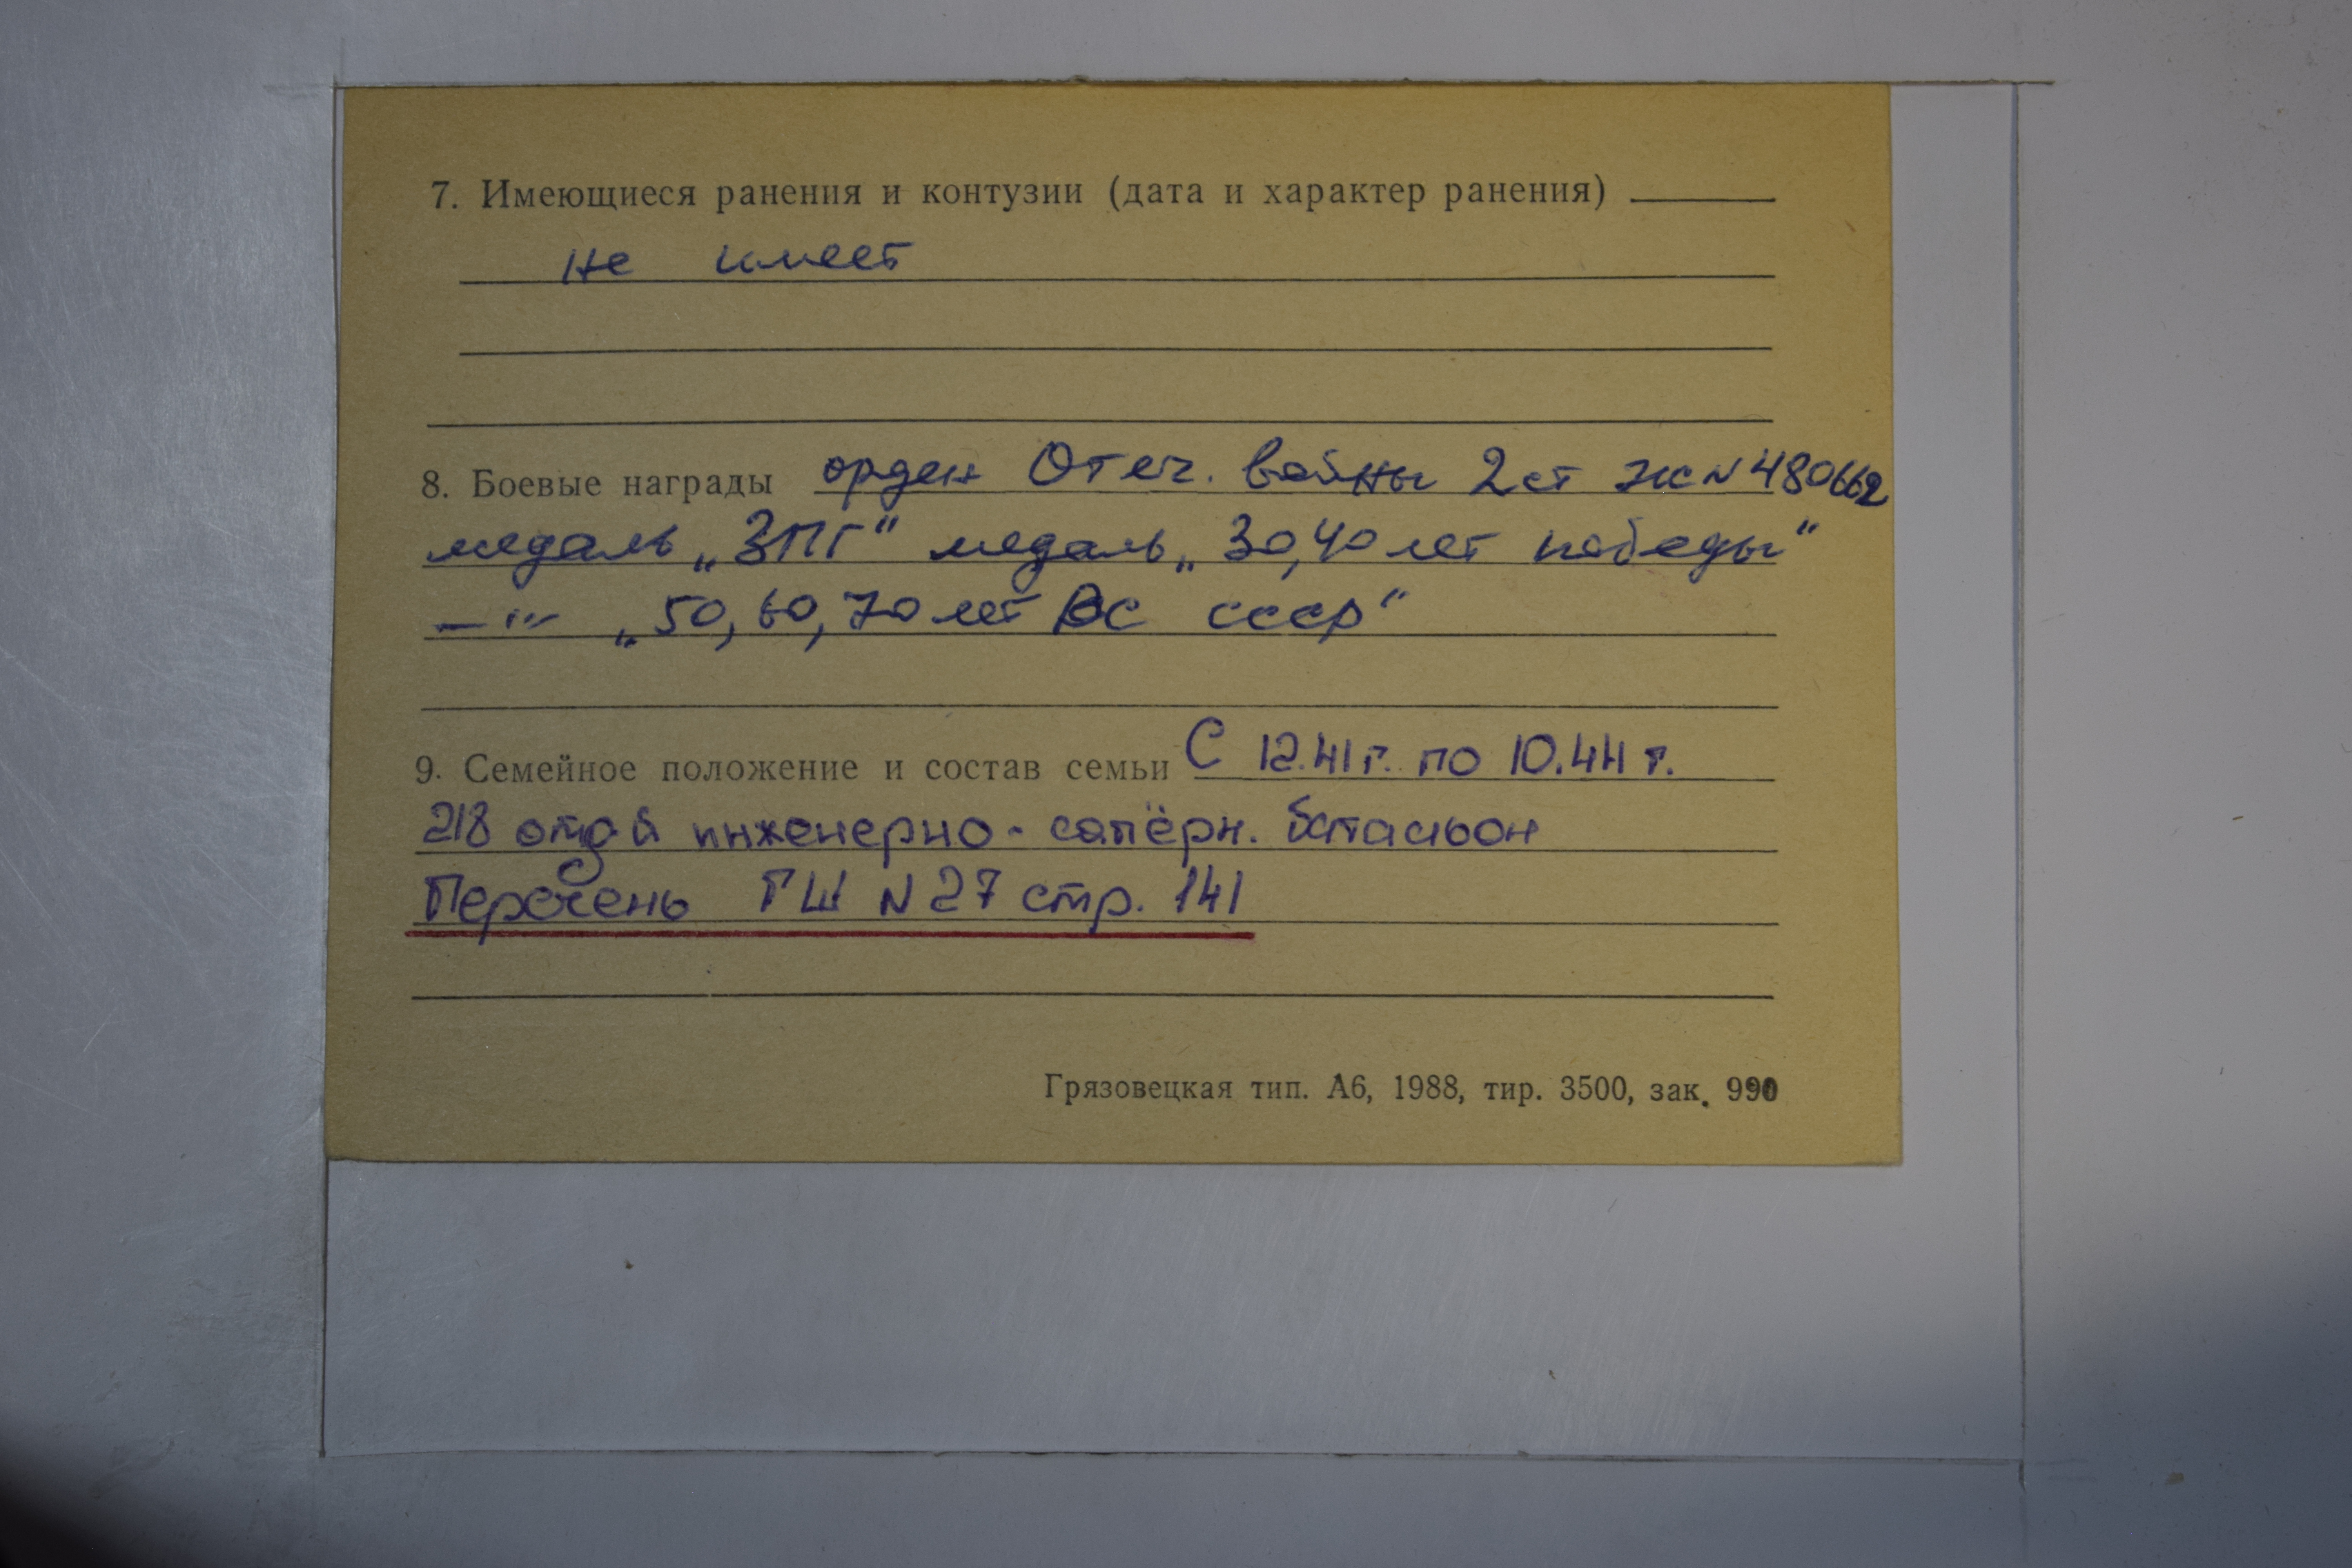 7. Имеющиеся ранения и контузии (дата и характер ранения)
не имеет
8. Боевые награды орден Отеч. войны 2 ст ЖN480662
медаль „ЗПГ“ медаль „30,40 лет победы“
—"— „50, 60, 70 лет ВС СССР“
9. Семейное положение и состав семьи С 12.41г. по 10.44 г.
218 отд-й инженерно-сапёрн. батальон
Перечень ГШ N27 стр. 141
Грязовецкая тип. А6, 1988, тир. 3500, зак. 990